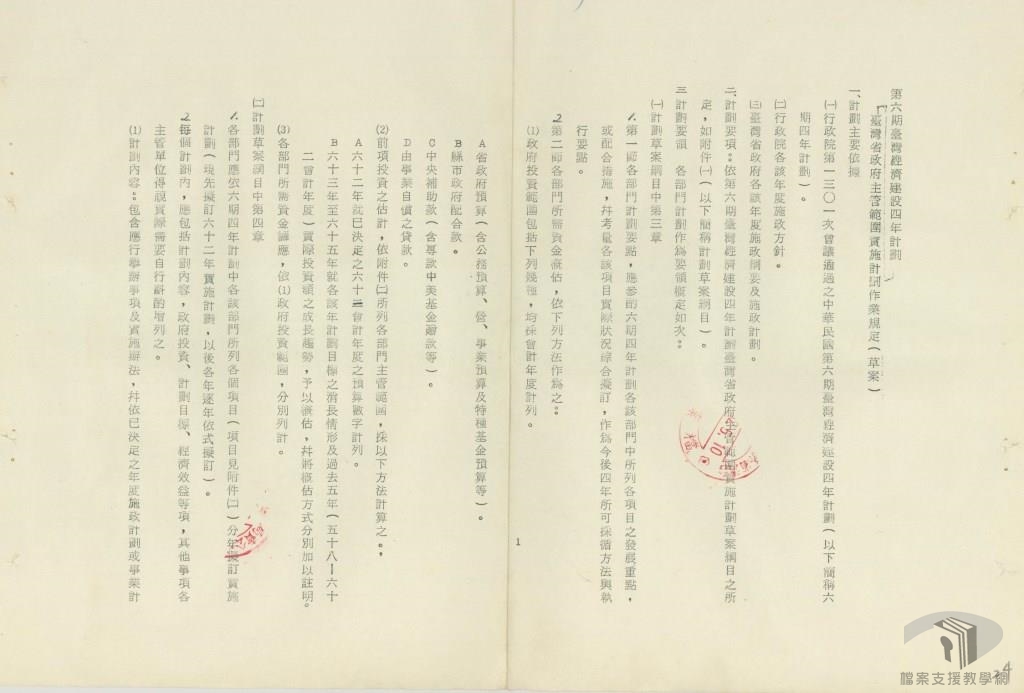 第六期臺灣經濟建設四年計劃
「臺灣省政府主管範圍實施計劃作業規定(草案)
一、計劃主要依據
(一)行政院第一三〇一次會議通過之中華民國第六期臺灣經濟建設四年計劃(以下簡稱六
期四年計劃)。
(二)行政院各該年度施政方針。
(三)臺灣省政府各該年度施政綱要及施政計劃。
二、計劃要項：依第六期臺灣經濟建設四年計劃臺灣省政府主管範圍實施計劃草案綱目之所
定，如附件(一)(以下簡稱計劃草案綱目)。
三計劃要領 各部門計劃作為要領概定如次：
(一)計劃草案綱目中第三章
1.第一節各部門計劃要點，應參酌六期四年計劃各該部門中所列各項目之發展重點，
或配合措施，幷考量各該項目實際狀況綜合擬訂，作為今後四年所可採循方法與執
行要點。
2.第二節各部門所需資金概估，依下列方法作為之：
(1)政府投資範圍包括下列幾種，均採會計年度計列。
1
A省政府預算(含公務預算、營、事業預算及特種基金預算等)。
B縣市政府配合款。
C中央補助款(含專款中美基金贈款等)。
D由事業自償之貸款。
(2)前項投資之估計，依附件(二)所列各部門主管範圍，採以下方法計算之。，
A六十二年就已決定之六十二會計年度之預算數字計列。
B六十三年至六十五年就各該年計劃目標之消長情形及過去五年(五十八—六十
二會計年度)實際投資額之成長趨勢，予以概估，幷將概估方式分別加以註明。
(3)各部門所需資金籌應，依(1)政府投資範圍，分別列計。
(二)計劃草案綱目中第四章
1.各部門應依六期四年計劃中各該部門所列各個項目(項目見附件(二))分年擬訂實施
計劃(現先擬訂六十二年實施計劃，以後各年逐年依式擬訂)。
2.每個計劃內，應包括計劃內容，政府投資、計劃目標、經濟效益等項，其他事項各
主管單位得視實際需要自行斟酌增列之。
(1)計劃內容：包含應行舉辦事項及實施辦法，幷依已決定之年度施政計劃或事業計
檔案支援教學網